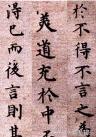 於不得不言之
美道充於中
得已而後言則其